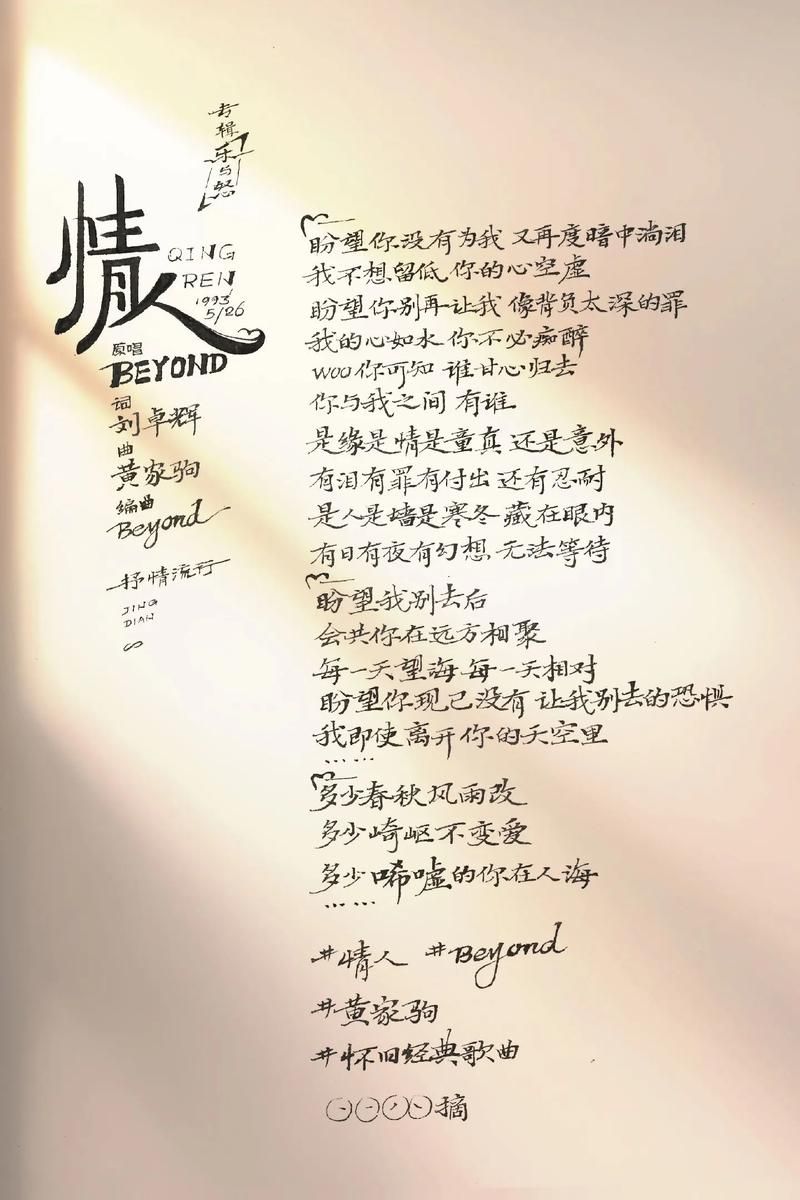 专辑
乐与怒
情人
QING
REN
1993/
5/26
原唱
BEYOND
词
刘卓辉
曲
黄家驹
编曲
Beyond
抒情流行
JING
DIAN
盼望你没有为我 又再度暗中淌泪
我不想留低 你的心空虚
盼望你别再让我 像背负太深的罪
我的心如水 你不必痴醉
woo你可知 谁甘心归去
你与我之间 有谁
是缘是情是童真 还是意外
有泪有罪有付出 还有忍耐
是人是墙是寒冬 藏在眼内
有日有夜有幻想 无法等待
盼望我别去后
会共你在远方相聚
每一天望海 每一天相对
盼望你现已没有 让我别去的恐惧
我即使离开你的天空里
……
多少春秋风雨改
多少崎岖不变爱
多少唏嘘的你在人海
……
#情人 #Beyond
#黄家驹
#怀旧经典歌曲
摘